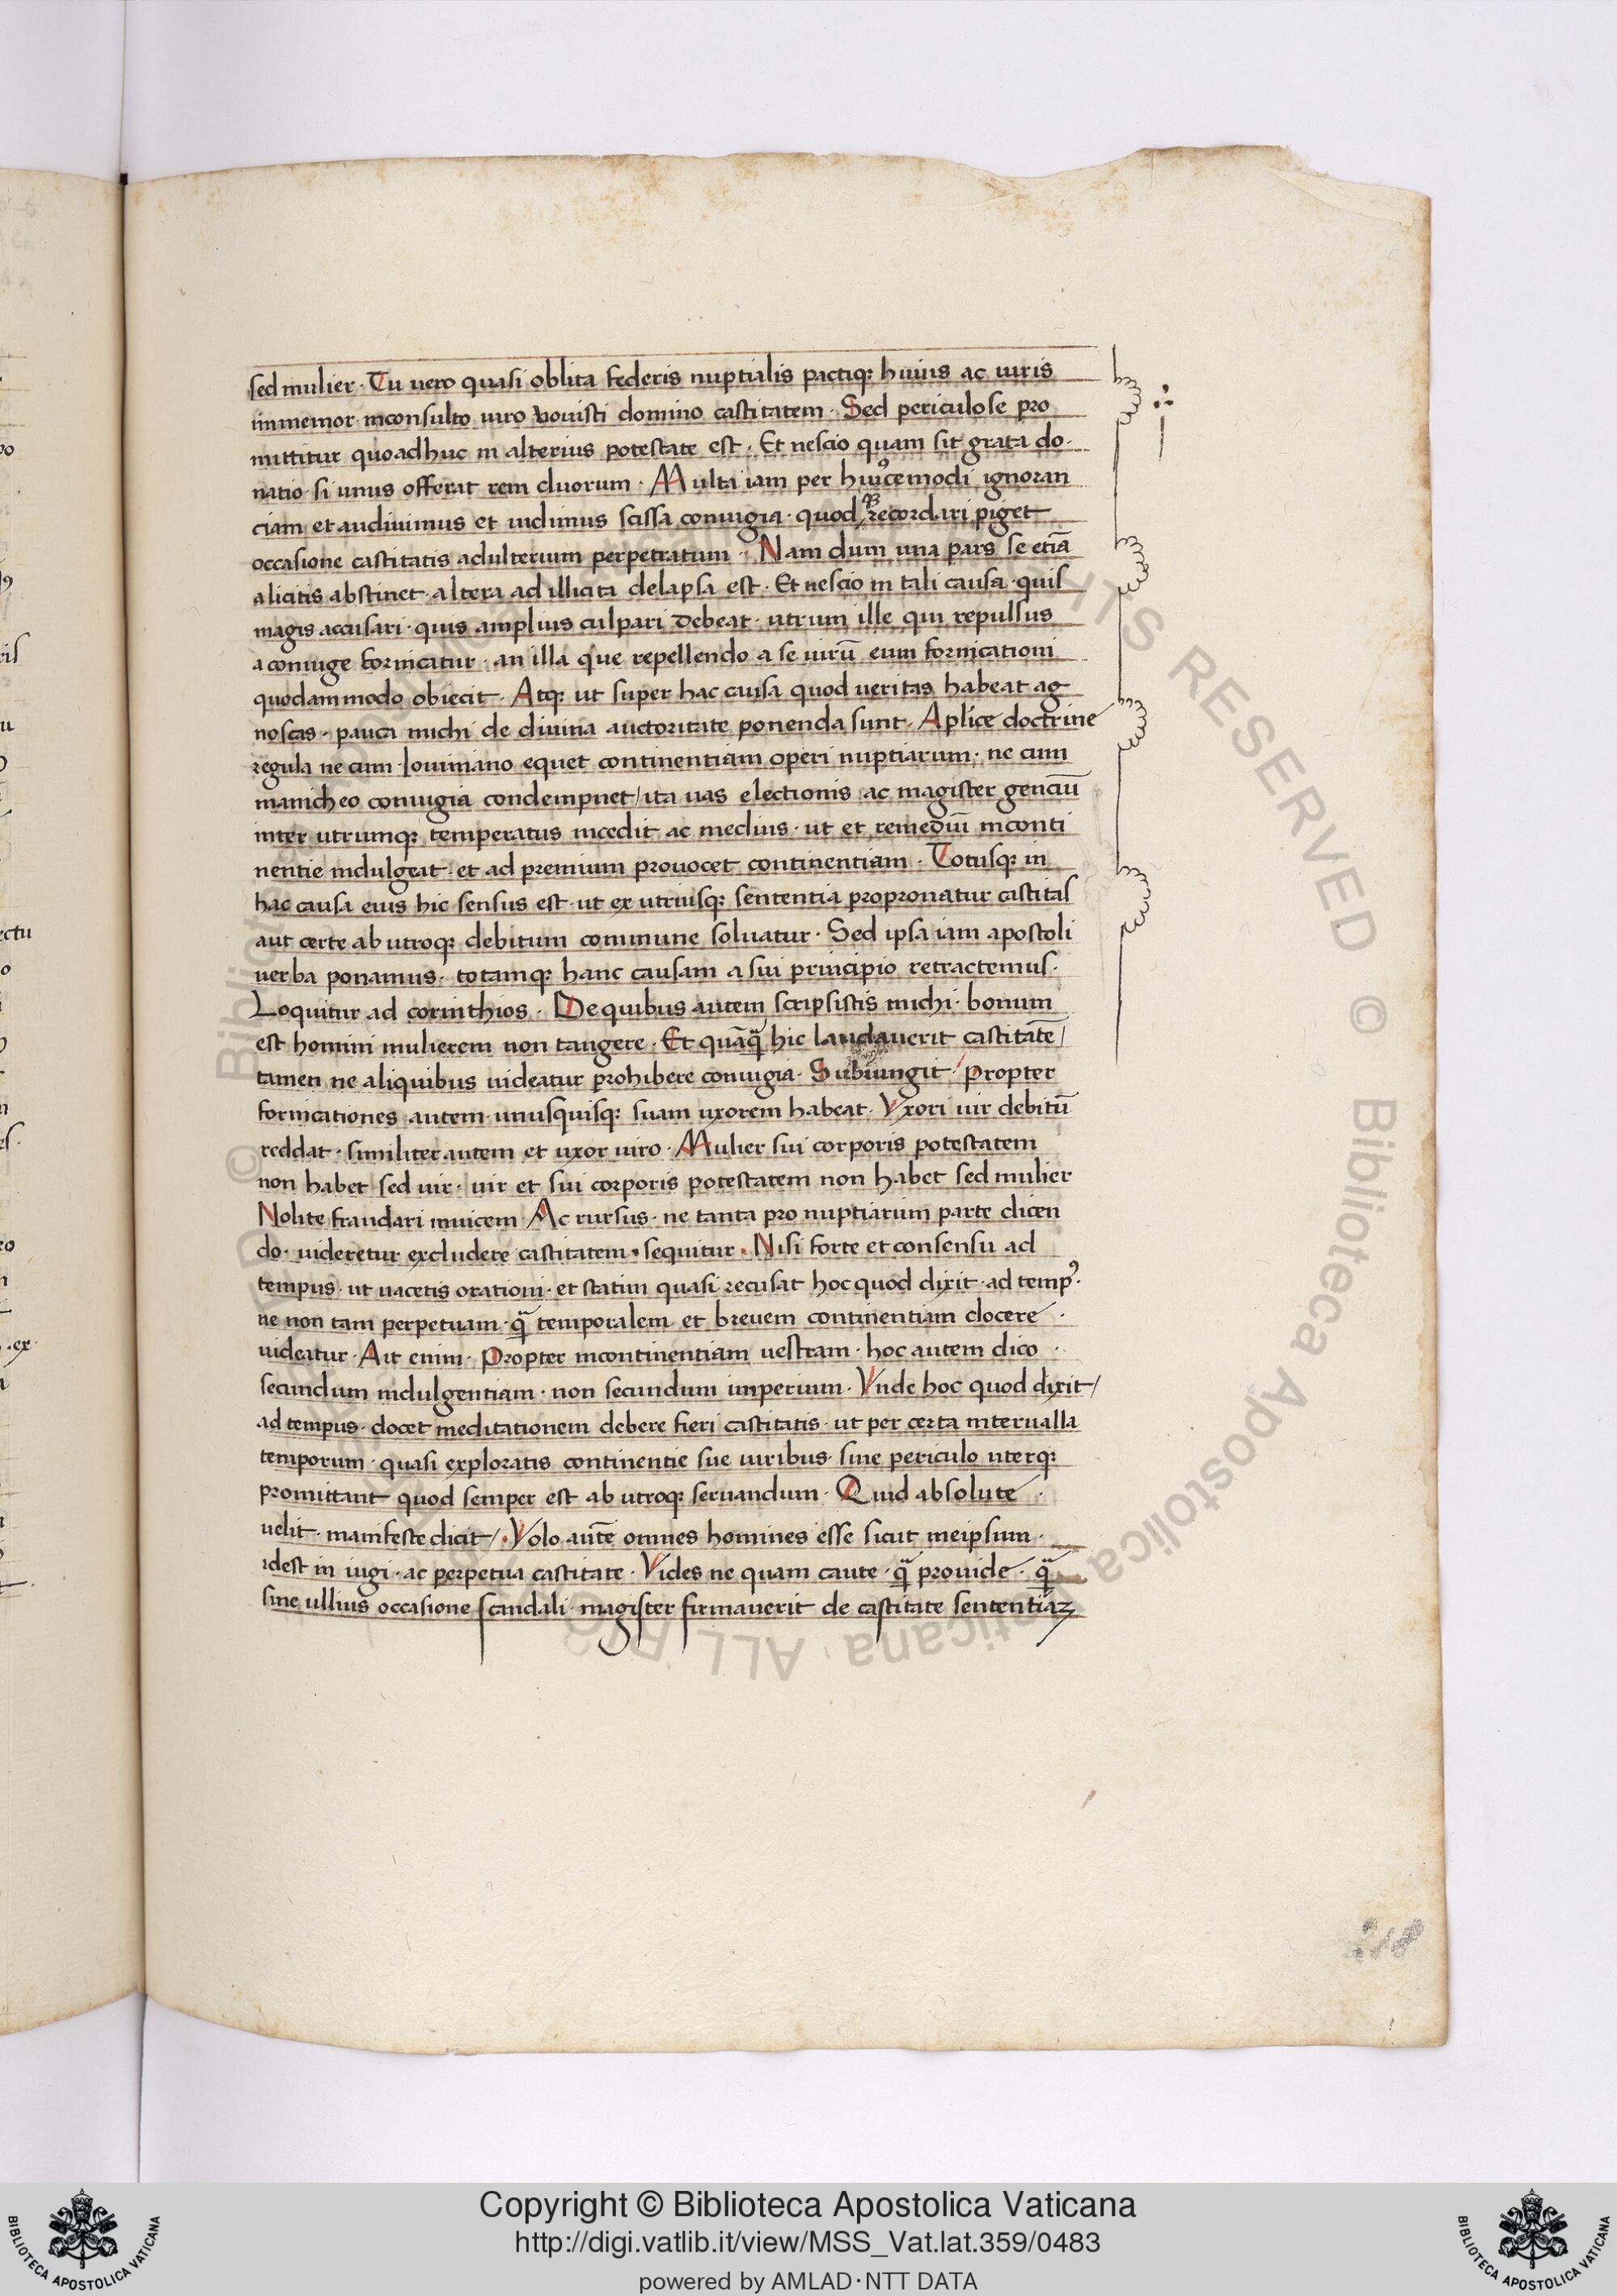 sed mulier · Tu uero quasi oblita federis nuptialis pactiqꝫ huius ac iuris
immemor · inconsulto uiro vouisti domino castitatem · Sed periculose pro
mittitur quo adhuc in alterius potestate est · Et nescio quam sit grata do·
natio · si unus offerat rem duorum · Multa iam per huiꝰcemodi ignoran
ciam et audiuimus et uidimus scissa coniugia · quod recordari piget
occasione castitatis adulterium perpetratum · Nam dum una pars se etiā
a licitis abstinet · altera ad illicita delapsa est · Et nescio in tali causa · quis
magis accusari · quis amplius culpari debeat · utrum ille qui repulsus
a coniuge fornicatur · an illa que repellendo a se uirū eum fornicationi
quodammodo obiecit · Atqꝫ ut super hac causa quod ueritas habeat ag
noscas · pauca michi de diuina auctoritate ponenda sunt · Aplice doctrine
regula ne cum Iouiniano equet continentiam operi nuptiarum · ne cum
manicheo coniugia condempnet/ ita uas electionis ac magister genciū
inter utrumqꝫ temperatus incedit ac medius · ut et remediū inconti
nentie indulgeat · et ad premium prouocet continentiam · Totusqꝫ in
hac causa eius hic sensus est · ut ex utriusqꝫ sententia propronatur castitas
aut certe ab utroqꝫ debitum commune soluatur · Sed ipsa iam apostoli
uerba ponamus · totamqꝫ hanc causam a sui principio retractemus ·
Loquitur ad corinthios · De quibus autem scripsistis michi · bonum
est homini mulierem non tangere · Et quāqꝫ̄ hic laudauerit castitatē/
tamen ne aliquibus uideatur prohibere coniugia · Subiungit / Propter
fornicationes autem · unusquisqꝫ suam uxorem habeat · Vxori uir debitū
reddat · similiter autem et uxor uiro · Mulier sui corporis potestatem
non habet sed uir · uir et sui corporis potestatem non habet sed mulier
Nolite fraudari inuicem · Ac rursus · ne tanta pro nuptiarum parte dicen
do · uideretur excludere castitatem · sequitur · Nisi forte et consensu ad
tempus · ut uacetis orationi · et statim quasi recusat hoc quod dixit · ad tempꝰ ·
ne non tam perpetuam · qꝫ̄ temporalem et breuem continentiam docere ·
uideatur · Ait enim · Propter incontinentiam uestram · hoc autem dico ·
secundum indulgentiam · non secundum imperium · Vnde hoc quod dixit/
ad tempus · docet meditationem debere fieri castitatis · ut per certa interualla
temporum · quasi exploratis continentie sue uiribus · sine periculo uterqꝫ
promittant quod semper est ab utroqꝫ seruandum · Quid absolute ·
uelit · manifeste dicit/ · Volo autē omnes homines esse sicut meipsum ·
idest in iugi · ac perpetua castitate · Vides ne quam caute · qꝫ̄ prouide · qꝫ̄
sine ullius occasione scandali · magister firmauerit de castitate sententiaz
218
Copyright © Biblioteca Apostolica Vaticana
http://digi.vatlib.it/view/MSS_Vat.lat.359/0483
powered by AMLAD·NTT DATA
BIBLIOTECA APOSTOLICA VATICANA
BIBLIOTECA APOSTOLICA VATICANA